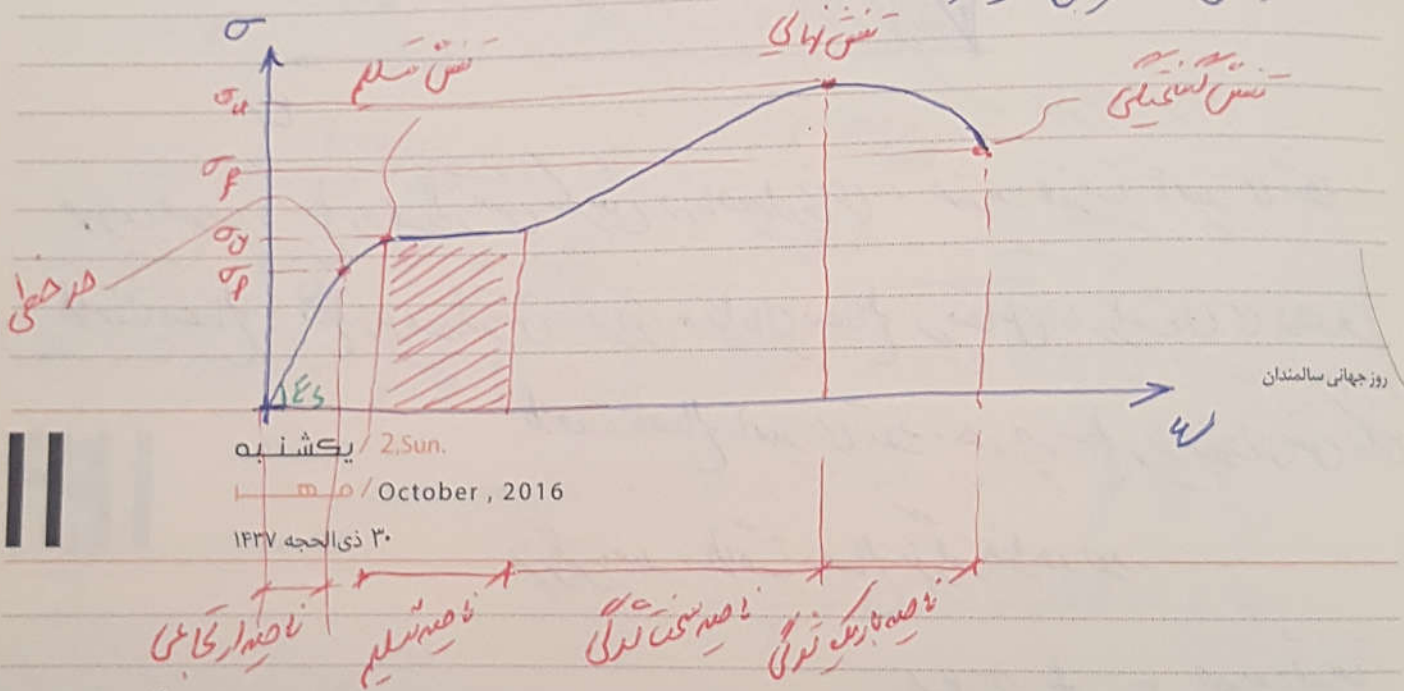 σ
تنش نهایی
تنش تسلیم
تنش گسیختگی
σu
σf
σy
σp
حد خطی
Es
ε
روز جهانی سالمندان
یکشنبه / 2.Sun.
مهر / October , 2016
۳۰ ذی‌الحجه ۱۴۳۷
ناحیه ارتجاعی
ناحیه تسلیم
ناحیه سخت شدگی
ناحیه باریک شدگی